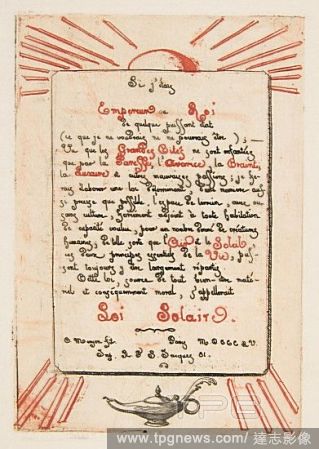 Si j'étais
Empereur ou Roi
de quelque puissant état
(ce que je ne voudrais ne ne pourrais être);—
Vu que les Grandes Cités ne sont infectées
que par la Paresse, l'Avarice, la
Luxure & autres mauvaises passions; je fe-
rais élaborer une Loi
si précise que possible, l'espace de terrain, avec ou
sans culture, forcément adjoint à toute habitation
de capacité voulue, pour un nombre donné de créatures
humaines; de telle sorte que l'Air & le Soleil,
ces deux principes essentiels de la Vie, pus-
sent toujours y être largement répartis.
Cette loi, source de tout bien-être maté-
riel et conséquemment moral, s'appellerait
Loi Solaire.
C. Meryon fct. Paris MDCCCLV.
R. N. S. Jacques 81.
www.tpgnews.com/ 達志影像